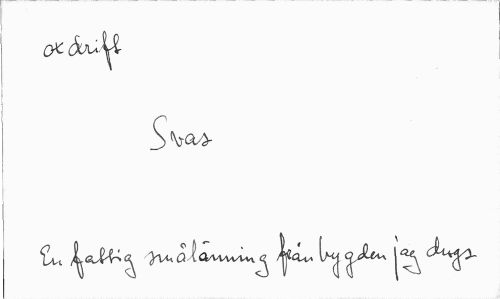 oxdrift
Svas
En fattig smålänning från bygden jag drogs